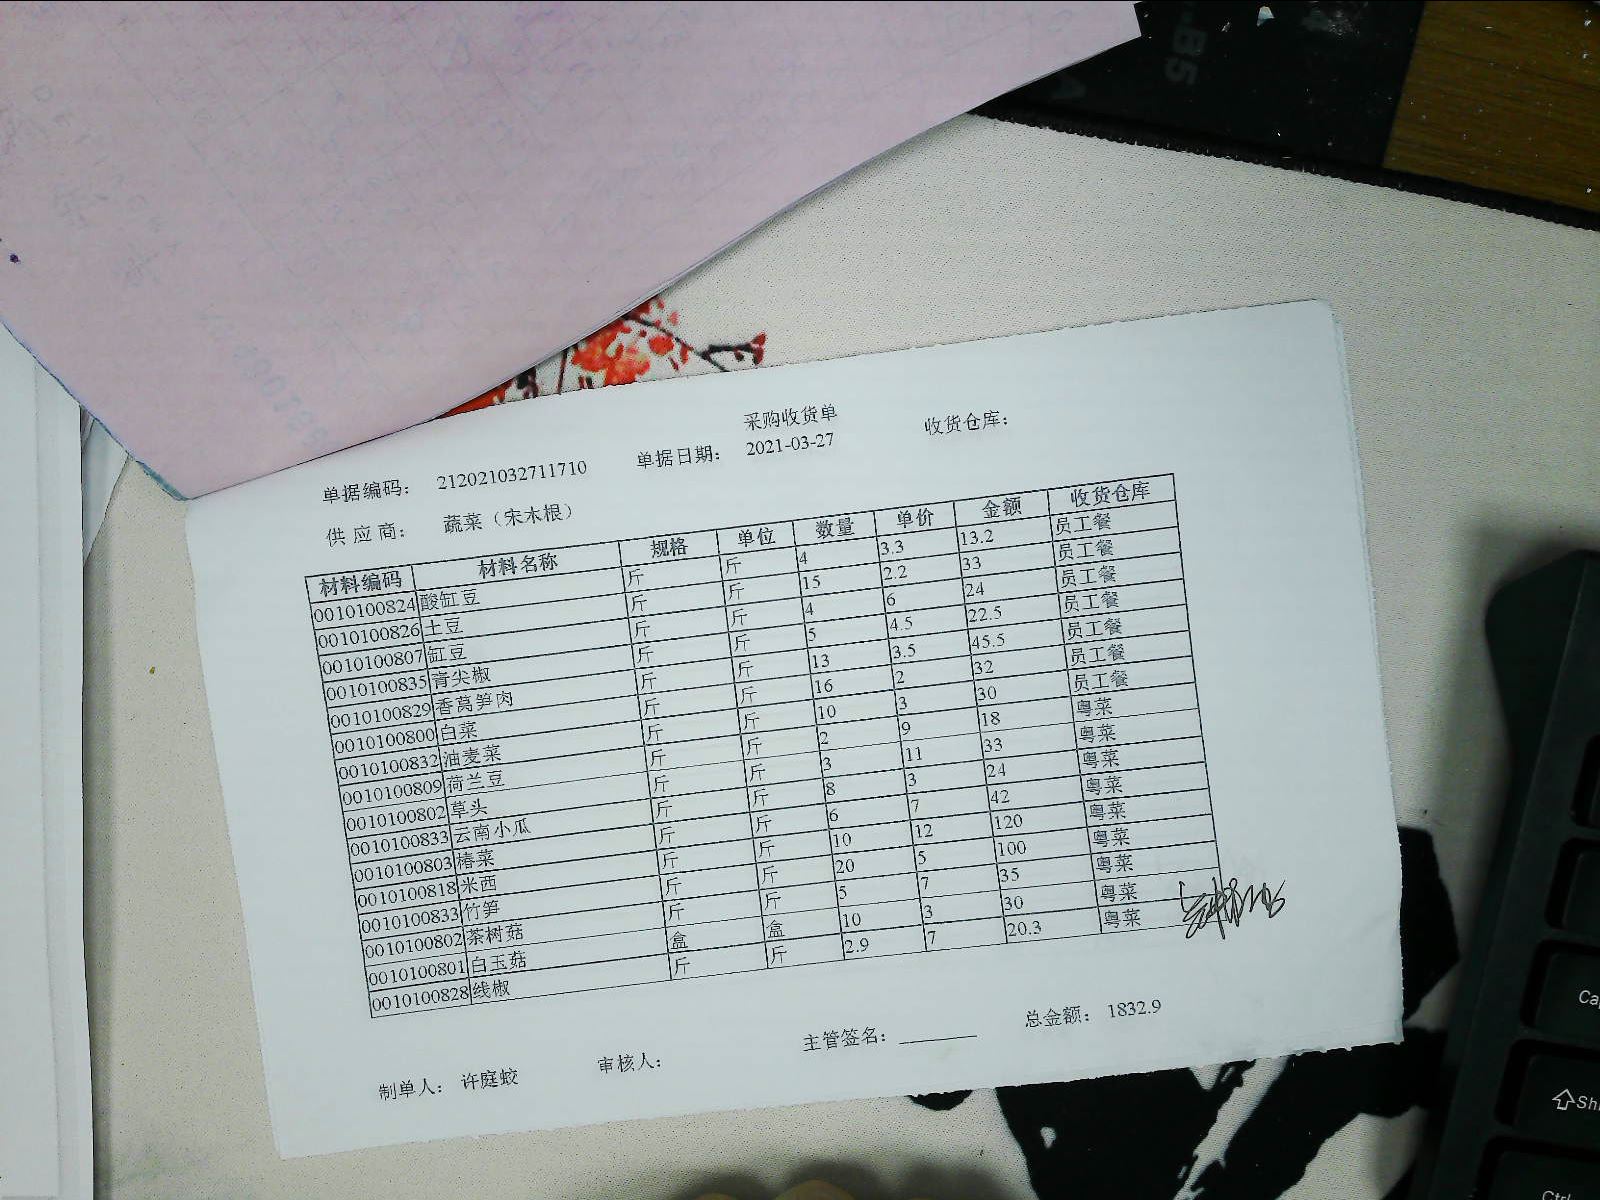 采购收货单
单据编码： 212021032711710 单据日期： 2021-03-27 收货仓库：
供应商： 蔬菜（宋木根）
材料编码 材料名称 规格 单位 数量 单价 金额 收货仓库
0010100824 酸缸豆 斤 斤 4 3.3 13.2 员工餐
0010100826 土豆 斤 斤 15 2.2 33 员工餐
0010100807 缸豆 斤 斤 4 6 24 员工餐
0010100835 青尖椒 斤 斤 5 4.5 22.5 员工餐
0010100829 香莴笋肉 斤 斤 13 3.5 45.5 员工餐
0010100800 白菜 斤 斤 16 2 32 员工餐
0010100832 油麦菜 斤 斤 10 3 30 员工餐
0010100809 荷兰豆 斤 斤 2 9 18 粤菜
0010100802 草头 斤 斤 3 11 33 粤菜
0010100833 云南小瓜 斤 斤 8 3 24 粤菜
0010100803 椿菜 斤 斤 6 7 42 粤菜
0010100818 米西 斤 斤 10 12 120 粤菜
0010100833 竹笋 斤 斤 20 5 100 粤菜
0010100802 茶树菇 斤 斤 5 7 35 粤菜
0010100801 白玉菇 盒 盒 10 3 30 粤菜
0010100828 线椒 斤 斤 2.9 7 20.3 粤菜
制单人： 许庭蛟 审核人： 主管签名： 总金额： 1832.9
B5
A